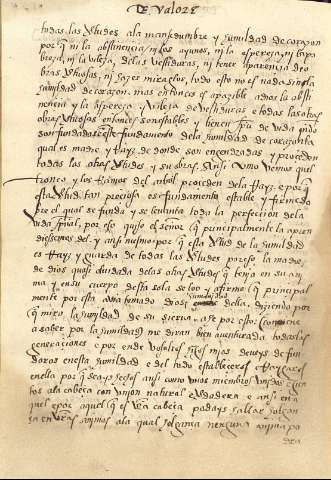 De Valores
todas las virtudes ala mansedumbre y humildad de corazon
por q̃ ni la abstinencia, ni los ayunos, ni la espereza, ni la po
breza, ni la vileza, delas vestiduras, ni tener aparencia de o
bras virtuosas, ni hazer miraclos, todo esto no es nada sin la
humildad de corazon. mas entonces es apazible a dios la abst
nencia y la espereza y vileza de vestiduras e todas las otras
obras virtuosas entonces son estables, y tienen de vida quando
son fundadas en este fundamento dela humildad de corazon la
qual es madre y Rayz de donde son engendradas y proceden
todas las otras virtudes y sus obras. Ansi como vemos quel
tronco y los Ramos del arbol proceden dela Rayz. e por q̃
esta virtud tan preciosa es fundamento estable y firme so
bre el qual se funda y se levanta toda la perfecion dela
vida spũal, por eso quiso el señor q̃ principalmente la apren
diessemos del. y ansi mesmo por q̃ esta virtud dela humildad
es Rayz y guarda de todas las virtudes por eso la madre
de dios quasi olvidada delas otras virtudes q̃ tenia en su ani
ma y en su cuerpo desta sola se loo y afirmo q̃ principal
mente por esta avia tomado dios humanidad della, diziendo por
que miro, la humildad de su sierva. e por esto conviene
a saber por la humildad me diran bien aventurada todas las
generaciones e por ende vosotros hijos mios deveys de fun
daros en esta humildad e del todo establecer os y Raygaros
en ella por q̃ seays hechos ansi como unos miembros unidos e jun
tos ala cabeça con union natural e verdadera e ansi en a
quel e por aquel q̃ es vrã cabeça podays hallar holgan
za en vrãs animas ala qual holgança ninguna anima po
dra